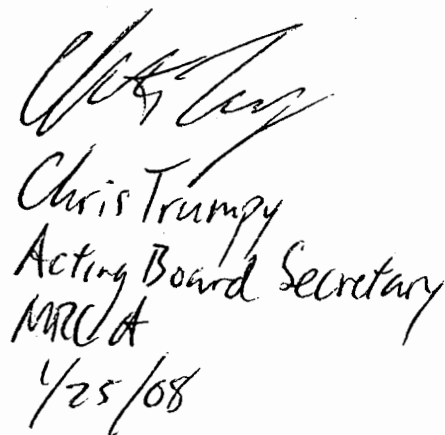 Chris Trumpy
Acting Board Secretary
MRCA
1/25/08